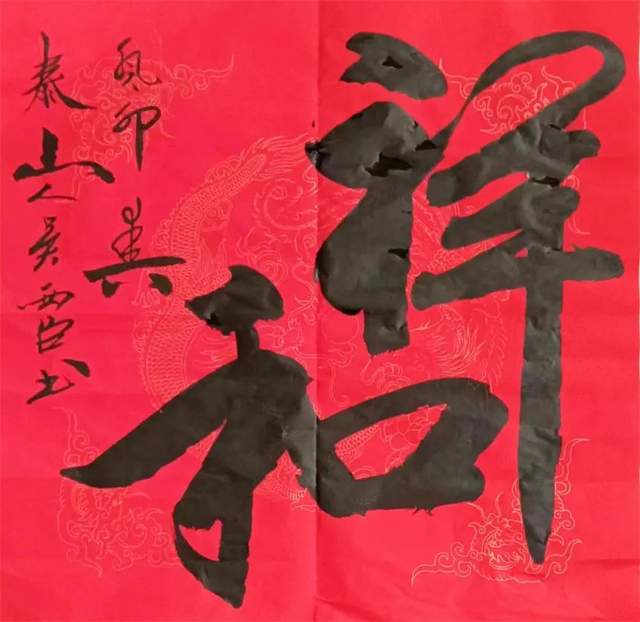 祥和
癸卯
泰山人吴西臣书